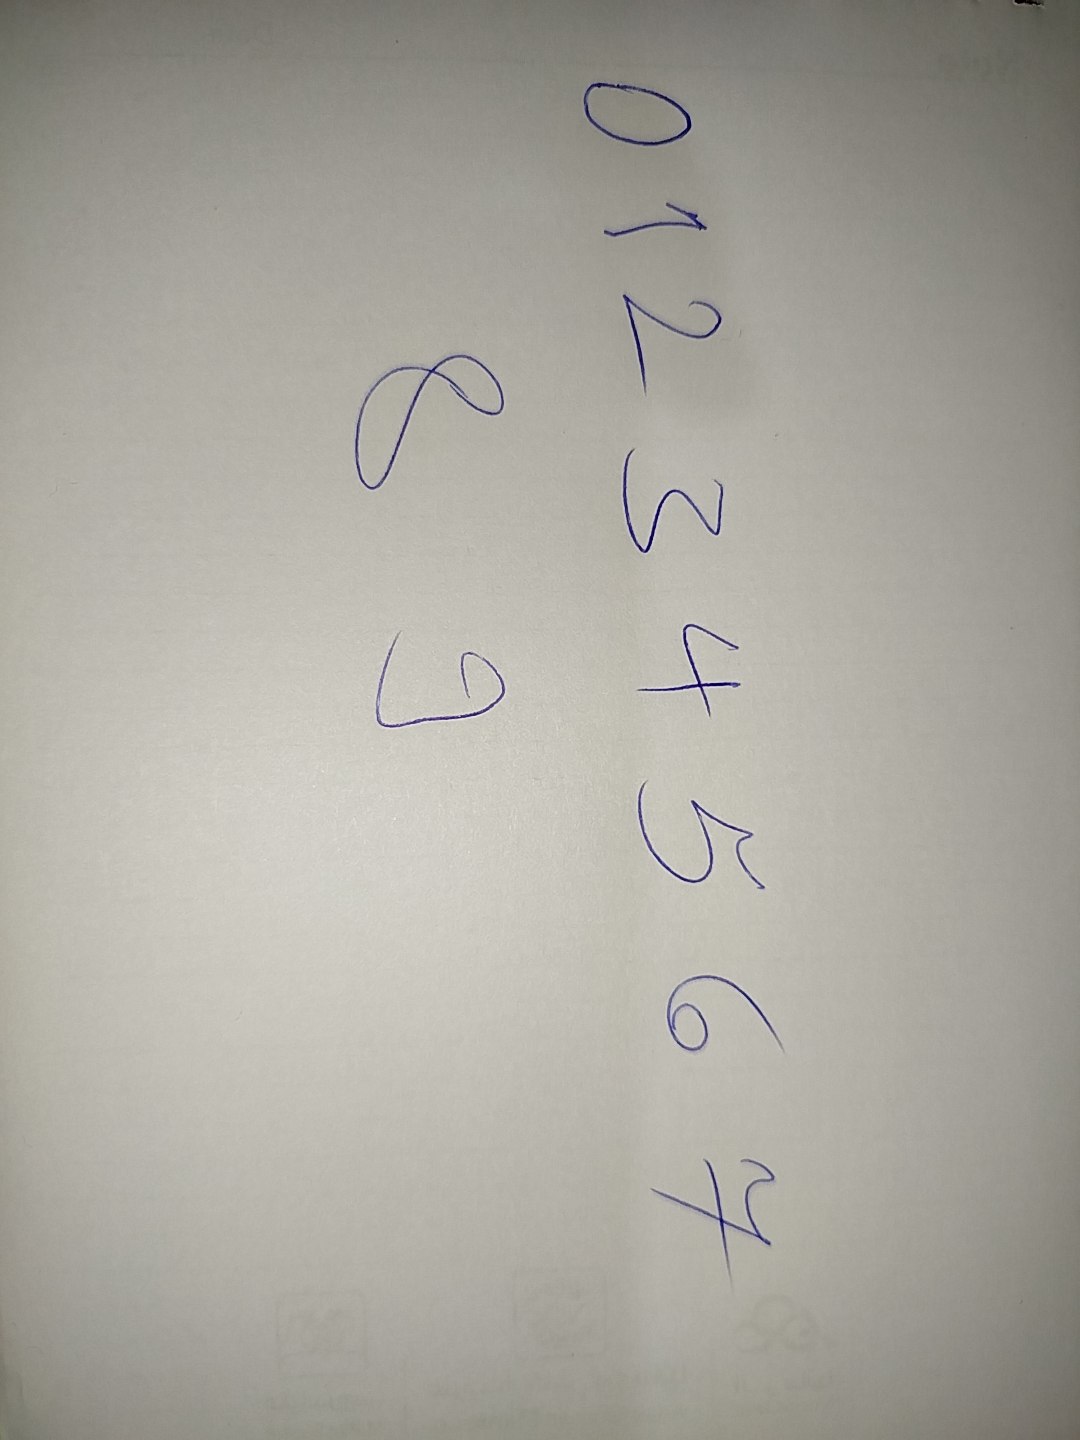 0 1 2 3 4 5 6 7
8 9